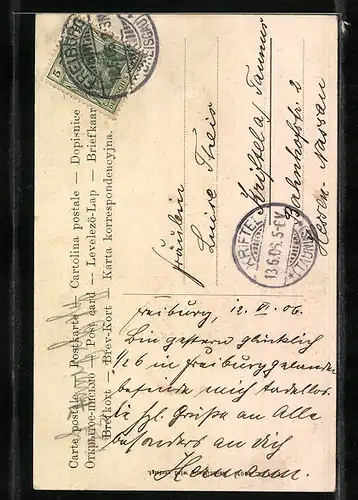 Carte postale — Postkarte — Cartolina postale — Dopisnice
Открытое письмо — Post card — Levelező-Lap — Briefkaart
Brefkort — Brev-Kort — Karta korrespondencyjna.
FREIBURG
(BREISGAU)
5
Fräulein
Luise Theis
Kriftel a/ Taunus
Bahnhofstr. 2
Hessen-Nassau
KRIFTEL
13.6.06. 5-6N.
(TAUNUS)
Freiburg, 12. VI. 06.
Bin gestern glücklich
1/2 6 in Freiburg gelandet
befinde mich tadellos.
hzl. Grüße an Alle
besonders an dich
Hermann.